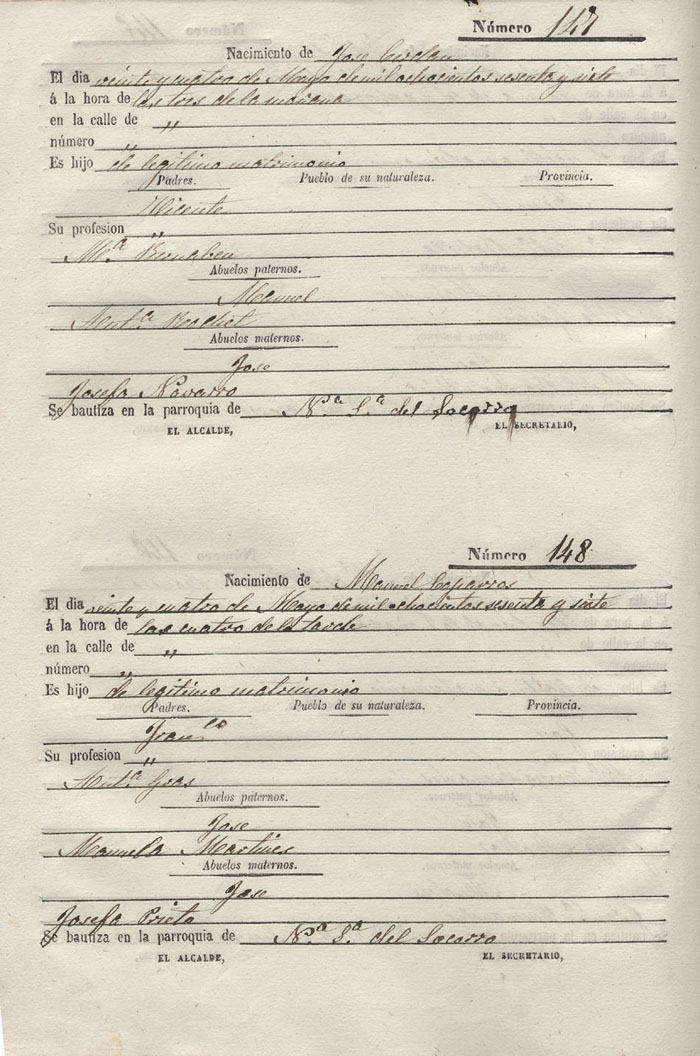 Número 147
Nacimiento de Jose Cerdan
El dia veinte y cuatro de Mayo de mil ochocientos sesenta y siete
á la hora de las tres de la mañana
en la calle de "
número "
Es hijo de legitimo matrimonio
Padres. Pueblo de su naturaleza. Provincia.
Vicente
Su profesion "
Mª Bernabeu
Abuelos paternos.
Manuel
Antª
Abuelos maternos.
Jose
Josefa Navarro
Se bautiza en la parroquia de Nª Sª del Socorro
EL ALCALDE, EL SECRETARIO,
Número 148
Nacimiento de Manuel Caparros
El dia veinte y cuatro de Mayo de mil ochocientos sesenta y siete
á la hora de las cuatro de la tarde
en la calle de "
número "
Es hijo de legitimo matrimonio
Padres. Pueblo de su naturaleza. Provincia.
Franco
Su profesion "
Antª Gras
Abuelos paternos.
Jose
Manuela Martines
Abuelos maternos.
Jose
Josefa Prieto
Se bautiza en la parroquia de Nª Sª del Socorro
EL ALCALDE, EL SECRETARIO,